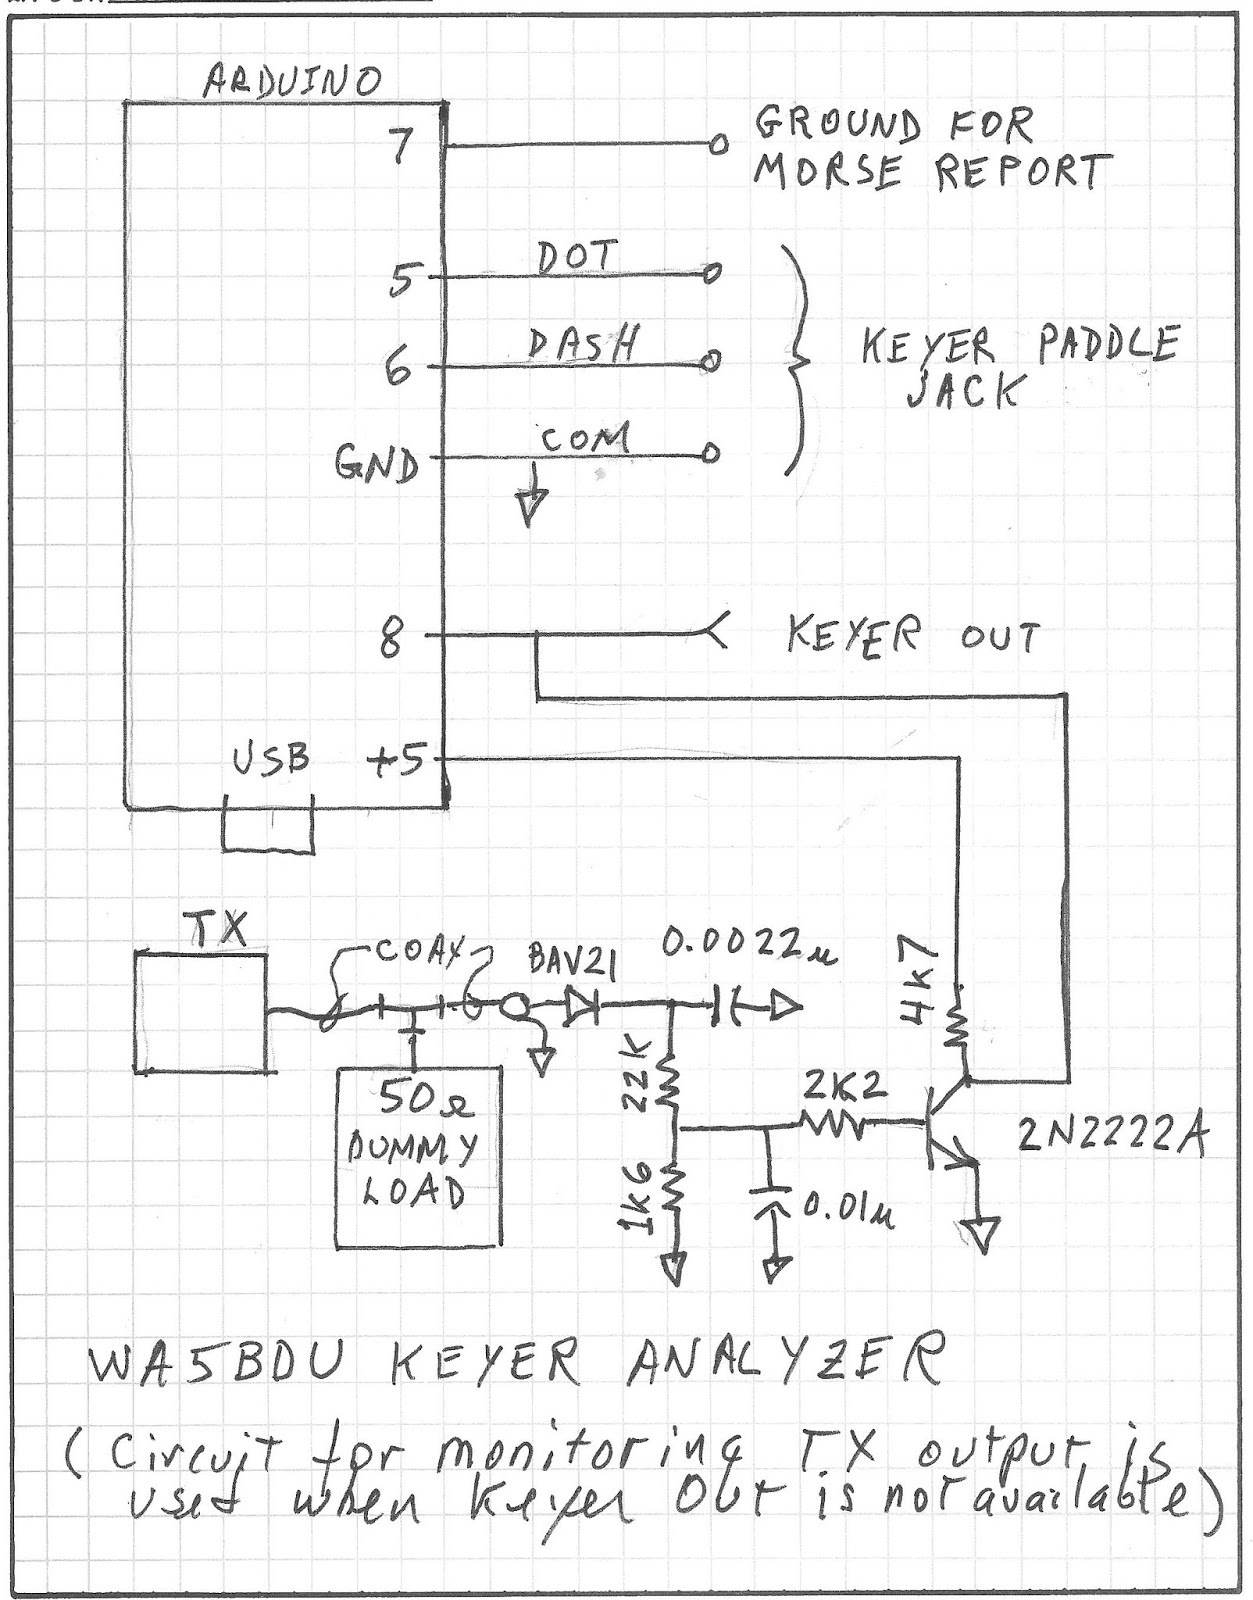 ARDUINO
7
GROUND FOR
MORSE REPORT
5
DOT
6
DASH
KEYER PADDLE
JACK
GND
COM
8
KEYER OUT
USB
+5
TX
COAX
BAV21
0.0022µ
4k7
22K
2K2
2N2222A
50Ω
DUMMY
LOAD
1k6
0.01µ
WA5BDU KEYER ANALYZER
(Circuit for monitoring TX output is
used when Keyer Out is not available)